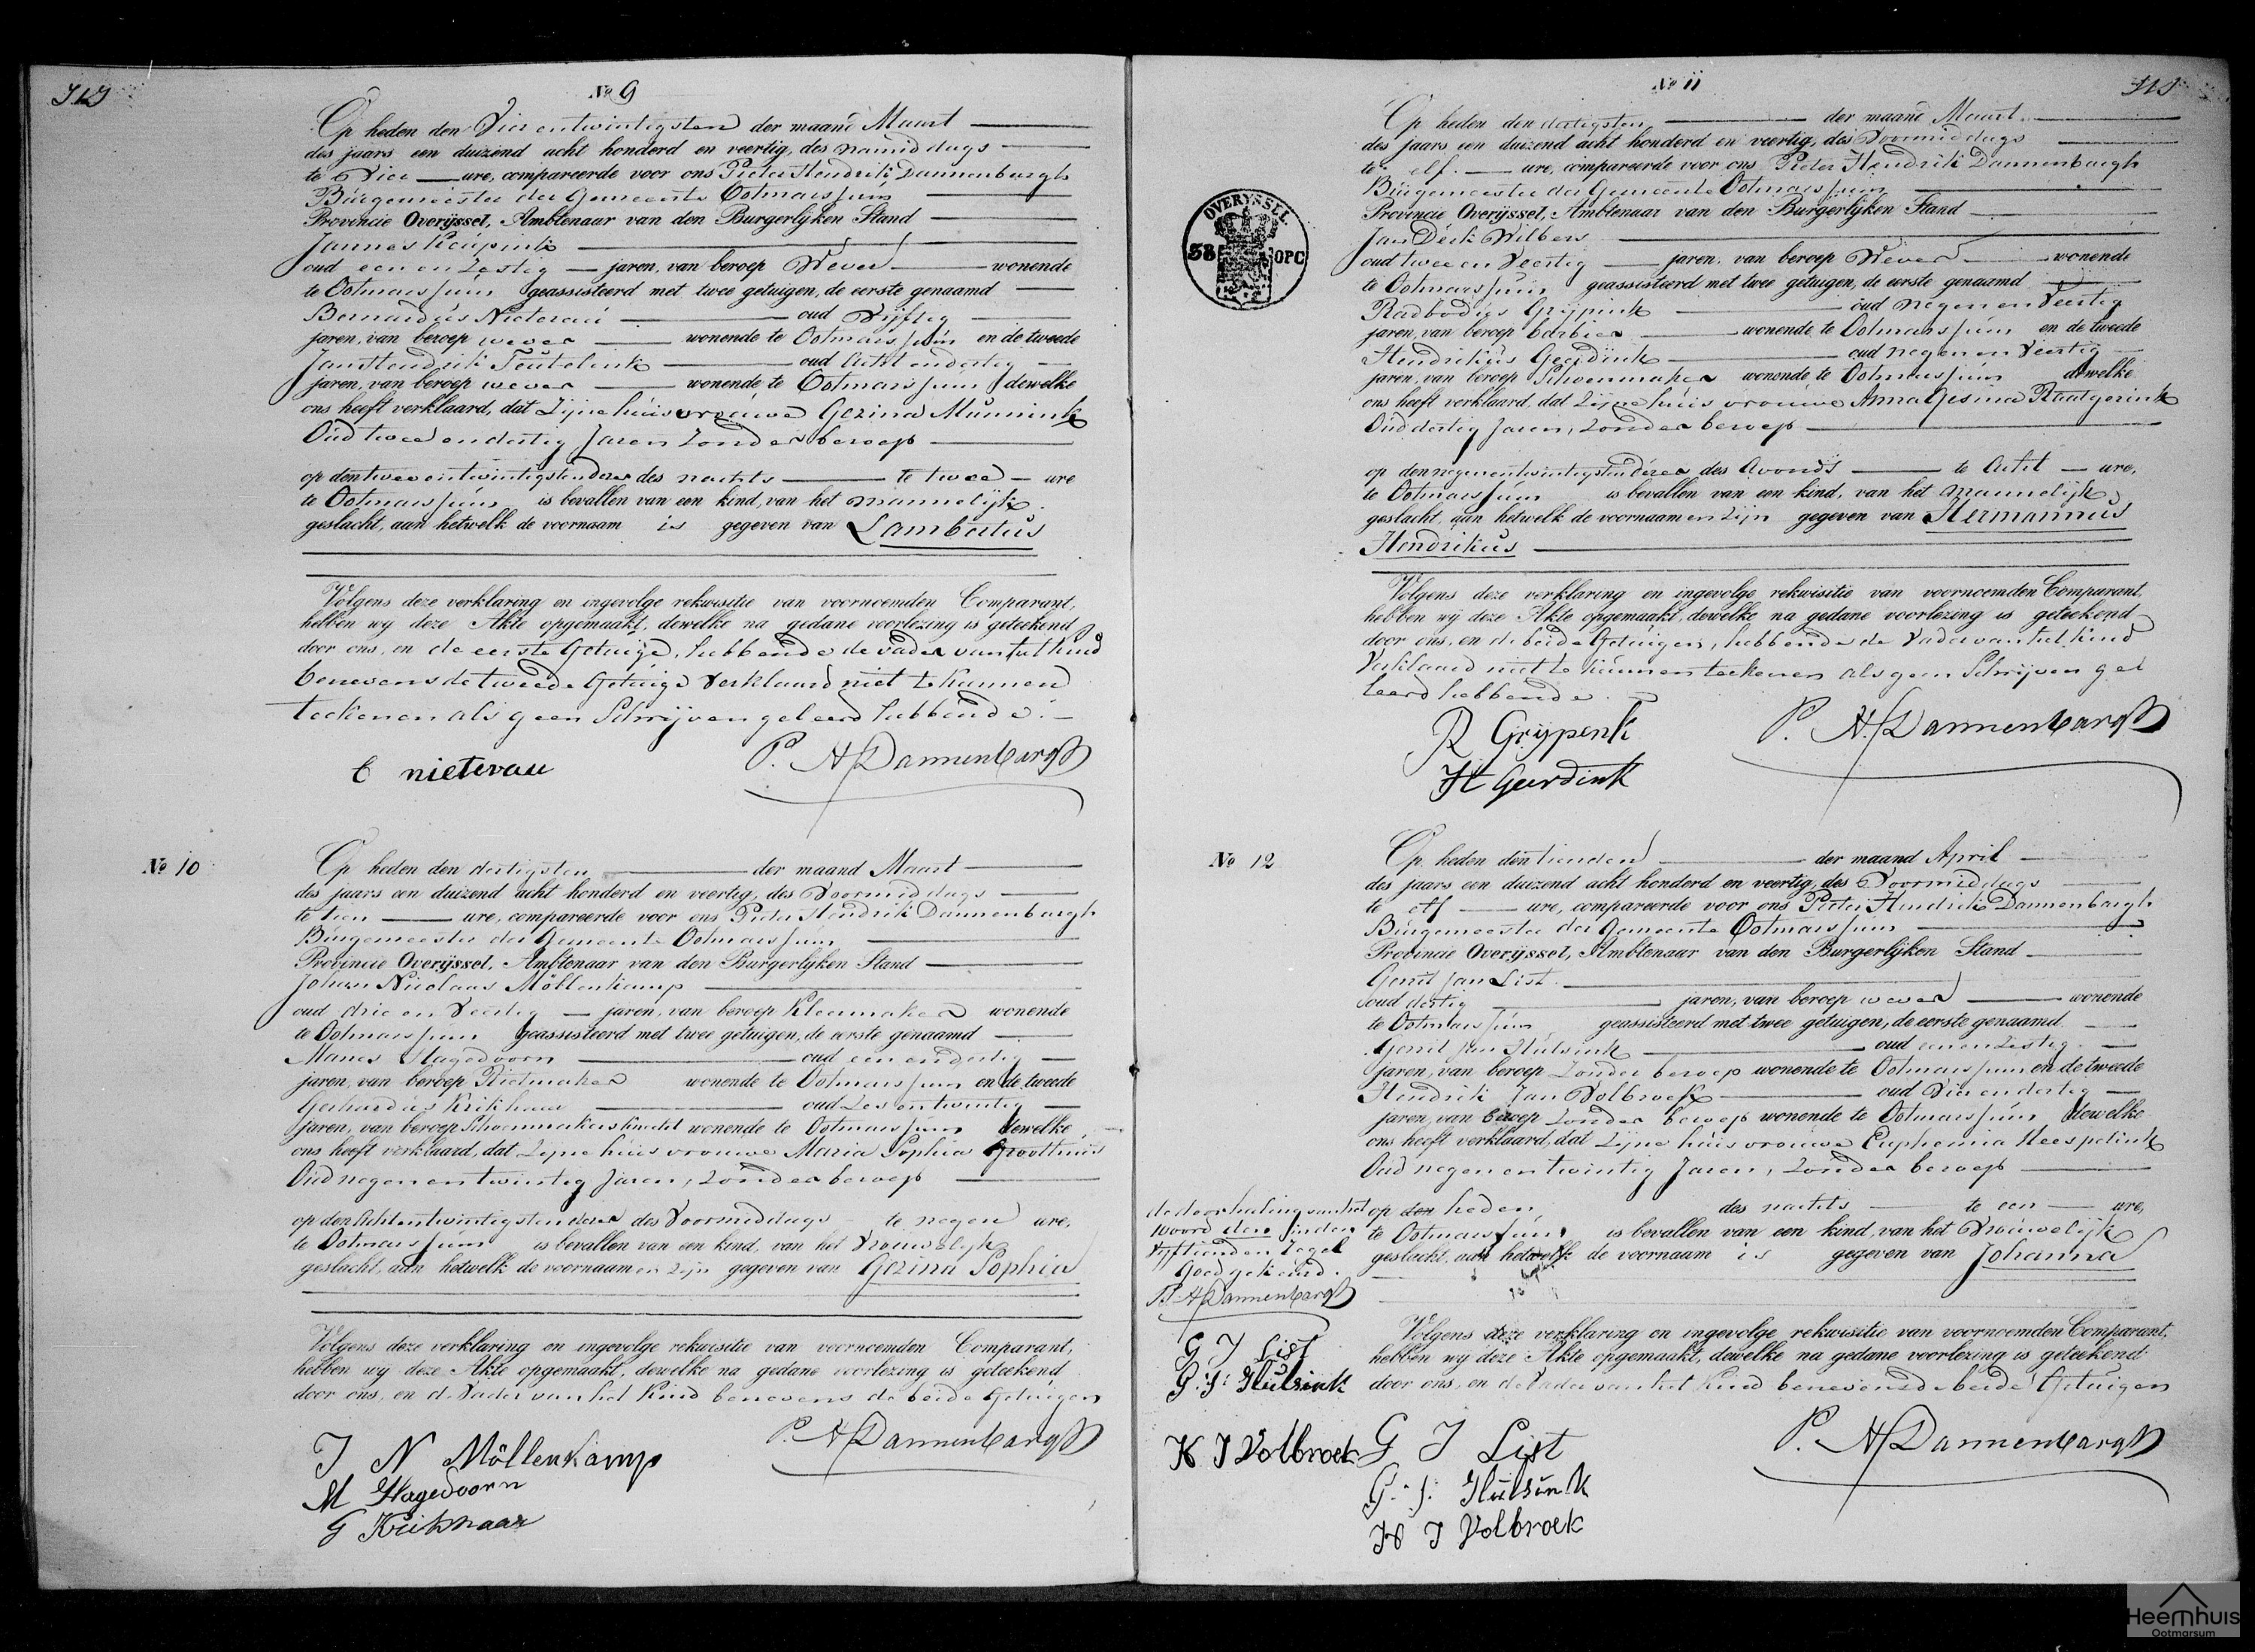 № 9
Op heden den Vier entwintigsten der maand Maart
des jaars een duizend acht honderd en veertig, des namiddags
te Vier ure, compareerde voor ons Pieter Hendrik Dannenbargh
Burgemeester der Gemeente Ootmarssum
Provincie Overijssel, Ambtenaar van den Burgerlijken Stand
Jannes
oud een en Zestig jaren, van beroep Wever wonende
te Ootmarssum geassisteerd met twee getuigen, de eerste genaamd
Bernardus Nieterau oud Vijftig
jaren, van beroep wever wonende te Ootmarssum en de tweede
Jan Hendrik oud Acht en dertig
jaren, van beroep wever wonende te Ootmarssum dewelke
ons heeft verklaard, dat Zijne huisvrouwe Gezina Munnink
Oud twee en dertig Jaren Zonder beroep
op den tweeentwintigsten dezer des nachts te twee ure
te Ootmarssum is bevallen van een kind, van het mannelijk
geslacht, aan hetwelk de voornaam is gegeven van Lambertus
Volgens deze verklaring en ingevolge rekwisitie van voornoemden Comparant,
hebben wy deze Akte opgemaakt, dewelke na gedane voorlezing is geteekend
door ons, en de eerste Getuige, hebbende de vader van het kind
benevens de tweede Getuige Verklaard niet te kunnen
teekenen als geen Schrijven geleerd hebbende.
B nieterau P. H Dannenbargh
№ 10
Op heden den dertigsten der maand Maart
des jaars een duizend acht honderd en veertig, des Voormiddags
te tien ure, compareerde voor ons Pieter Hendrik Dannenbargh
Burgemeester der Gemeente Ootmarssum
Provincie Overijssel, Ambtenaar van den Burgerlijken Stand
Johan Nicolaas Möllenkamp
oud drie en Veertig jaren, van beroep Kleermaker wonende
te Ootmarssum geassisteerd met twee getuigen, de eerste genaamd
Manes Hagedoorn oud een en dertig
jaren, van beroep Rietmaker wonende te Ootmarssum en de tweede
Gerhardus Krikhaar oud Zes en twintig
jaren, van beroep Schoenmakersknecht wonende te Ootmarssum dewelke
ons heeft verklaard, dat Zijne huisvrouwe Maria Sophia Groothuis
Oud negen en twintig Jaren, Zonder beroep
op den Achtentwintigsten dezer des Voormiddags te negen ure,
te Ootmarssum is bevallen van een kind, van het Vrouwelijk
geslacht, aan hetwelk de voornaam en Zijn gegeven van Gezina Sophia
Volgens deze verklaring en ingevolge rekwisitie van voornoemden Comparant,
hebben wy deze Akte opgemaakt, dewelke na gedane voorlezing is geteekend,
door ons, en de Vader van het Kind benevens de beide Getuigen
J N Möllenkamp P. H Dannenbargh
M Hagedoorn
G Krikhaar
№ 11
OVERYSSEL
38 OPC
Op heden den dertigsten der maand Maart
des jaars een duizend acht honderd en veertig, des Voormiddags
te elf ure, compareerde voor ons Pieter Hendrik Dannenbargh
Burgemeester der Gemeente Ootmarssum
Provincie Overijssel, Ambtenaar van den Burgerlijken Stand
Jan Derk Wilbers
oud twee en Veertig jaren, van beroep Wever wonende
te Ootmarssum geassisteerd met twee getuigen, de eerste genaamd
Radbodus Grijpink oud negen en Veertig
jaren, van beroep barbier wonende te Ootmarssum en de tweede
Hendrikus Geerdink oud negen en Veertig
jaren, van beroep Schoenmaker wonende te Ootmarssum dewelke
ons heeft verklaard, dat Zijne huisvrouwe Anna Gesina Raatgerink
Oud dertig Jaren, Zonder beroep
op den negenentwintigsten dezer des Avonds te Acht ure,
te Ootmarssum is bevallen van een kind, van het mannelijk
geslacht, aan hetwelk de voornaam en Zijn gegeven van Hermannus
Hendrikus
Volgens deze verklaring en ingevolge rekwisitie van voornoemden Comparant,
hebben wij deze Akte opgemaakt, dewelke na gedane voorlezing is geteekend
door ons, en de beide Getuigen, hebbende de Vader van het Kind
Verklaard niet te kunnen teekenen als geen Schrijven gel
eerd hebbende.
R Grijpenk P. H. Dannenbargh
H Geerdink
№ 12
Op heden den tienden der maand April
des jaars een duizend acht honderd en veertig, des Voormiddags
te elf ure, compareerde voor ons Pieter Hendrik Dannenbargh
Burgemeester der Gemeente Ootmarssum
Provincie Overijssel, Ambtenaar van den Burgerlijken Stand
Gerrit Jan List
oud dertig jaren, van beroep wever wonende
te Ootmarssum geassisteerd met twee getuigen, de eerste genaamd
Gerrit Jan Hulsink oud een en Zestig
jaren, van beroep Zonder beroep wonende te Ootmarssum en de tweede
Hendrik Jan Volbroek oud Vier en dertig
jaren, van beroep Zonder beroep wonende te Ootmarssum dewelke
ons heeft verklaard, dat Zijne huisvrouwe Euphemia Heespelink
Oud negen en twintig Jaren, Zonder beroep
op den heden des nachts te een ure,
te Ootmarssum is bevallen van een kind, van het Vrouwelijk
geslacht, aan hetwelk de voornaam is gegeven van Johanna
de doorhaling van het
woord den in den
vijftienden regel
Goedgekeurd.
P. H Dannenbargh
G J List
G: J: Hulsink
H J Volbroek
Volgens deze verklaring en ingevolge rekwisitie van voornoemden Comparant,
hebben wij deze Akte opgemaakt, dewelke na gedane voorlezing is geteekend
door ons, en de Vader van het Kind benevens de beide Getuigen
G J List P. H Dannenbargh
G: J: Hulsink
H J Volbroek
Heemhuis
Ootmarsum